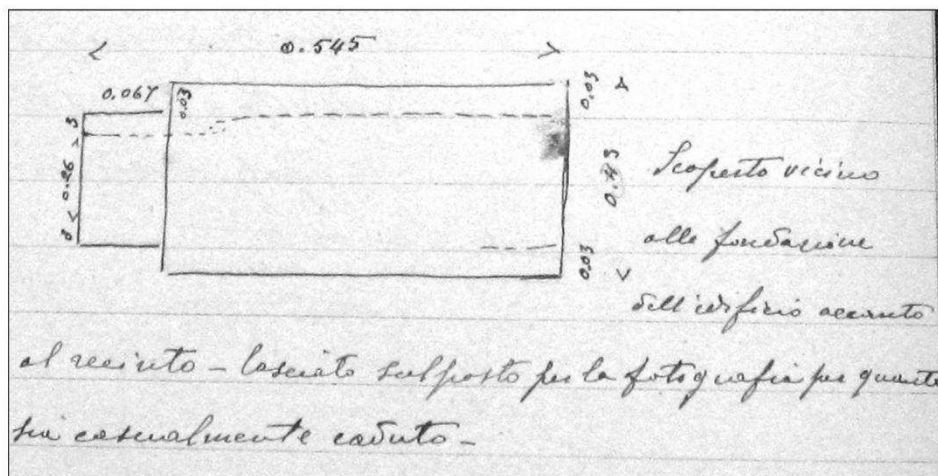 < 0.545 >
0.067
0.03
0.03
3
< 0.26 >
0.43
0.03
Scoperto vicino
alle fondazione
dell'edificio accanto
al recinto – lasciato sul posto per la fotografia per quanto
sia casualmente caduto –